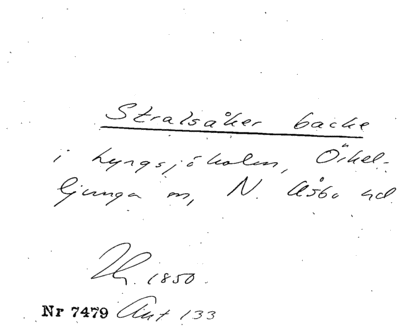 Stralsåker backe
i Lyngsjöholm, Örkel-
ljunga sn, N. Åsbo hd
Th. 1850.
Nr 7479 Ant 133